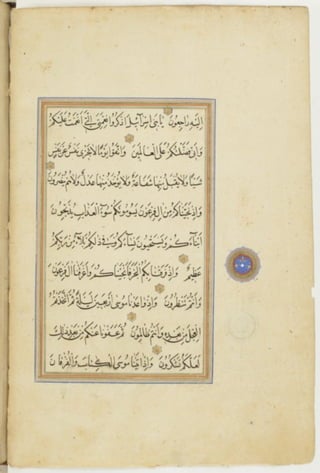 اليه راجعون يا بني اسرائيل اذكروا نعمتي التي انعمت عليكم
واني فضلتكم على العالمين واتقوا يوما لا تجزي نفس عن نفس
شيئا ولا يقبل منها شفاعة ولا يؤخذ منها عدل ولا هم ينصرون
واذ نجيناكم من ال فرعون يسومونكم سوء العذاب يذبحون
ابناءكم ويستحيون نساءكم وفي ذلكم بلاء من ربكم
عظيم واذ فرقنا بكم البحر فانجيناكم واغرقنا ال فرعون
وانتم تنظرون واذ واعدنا موسى اربعين ليلة ثم اتخذتم
العجل من بعده وانتم ظالمون ثم عفونا عنكم من بعد ذلك
لعلكم تشكرون واذ اتينا موسى الكتاب والفرقان